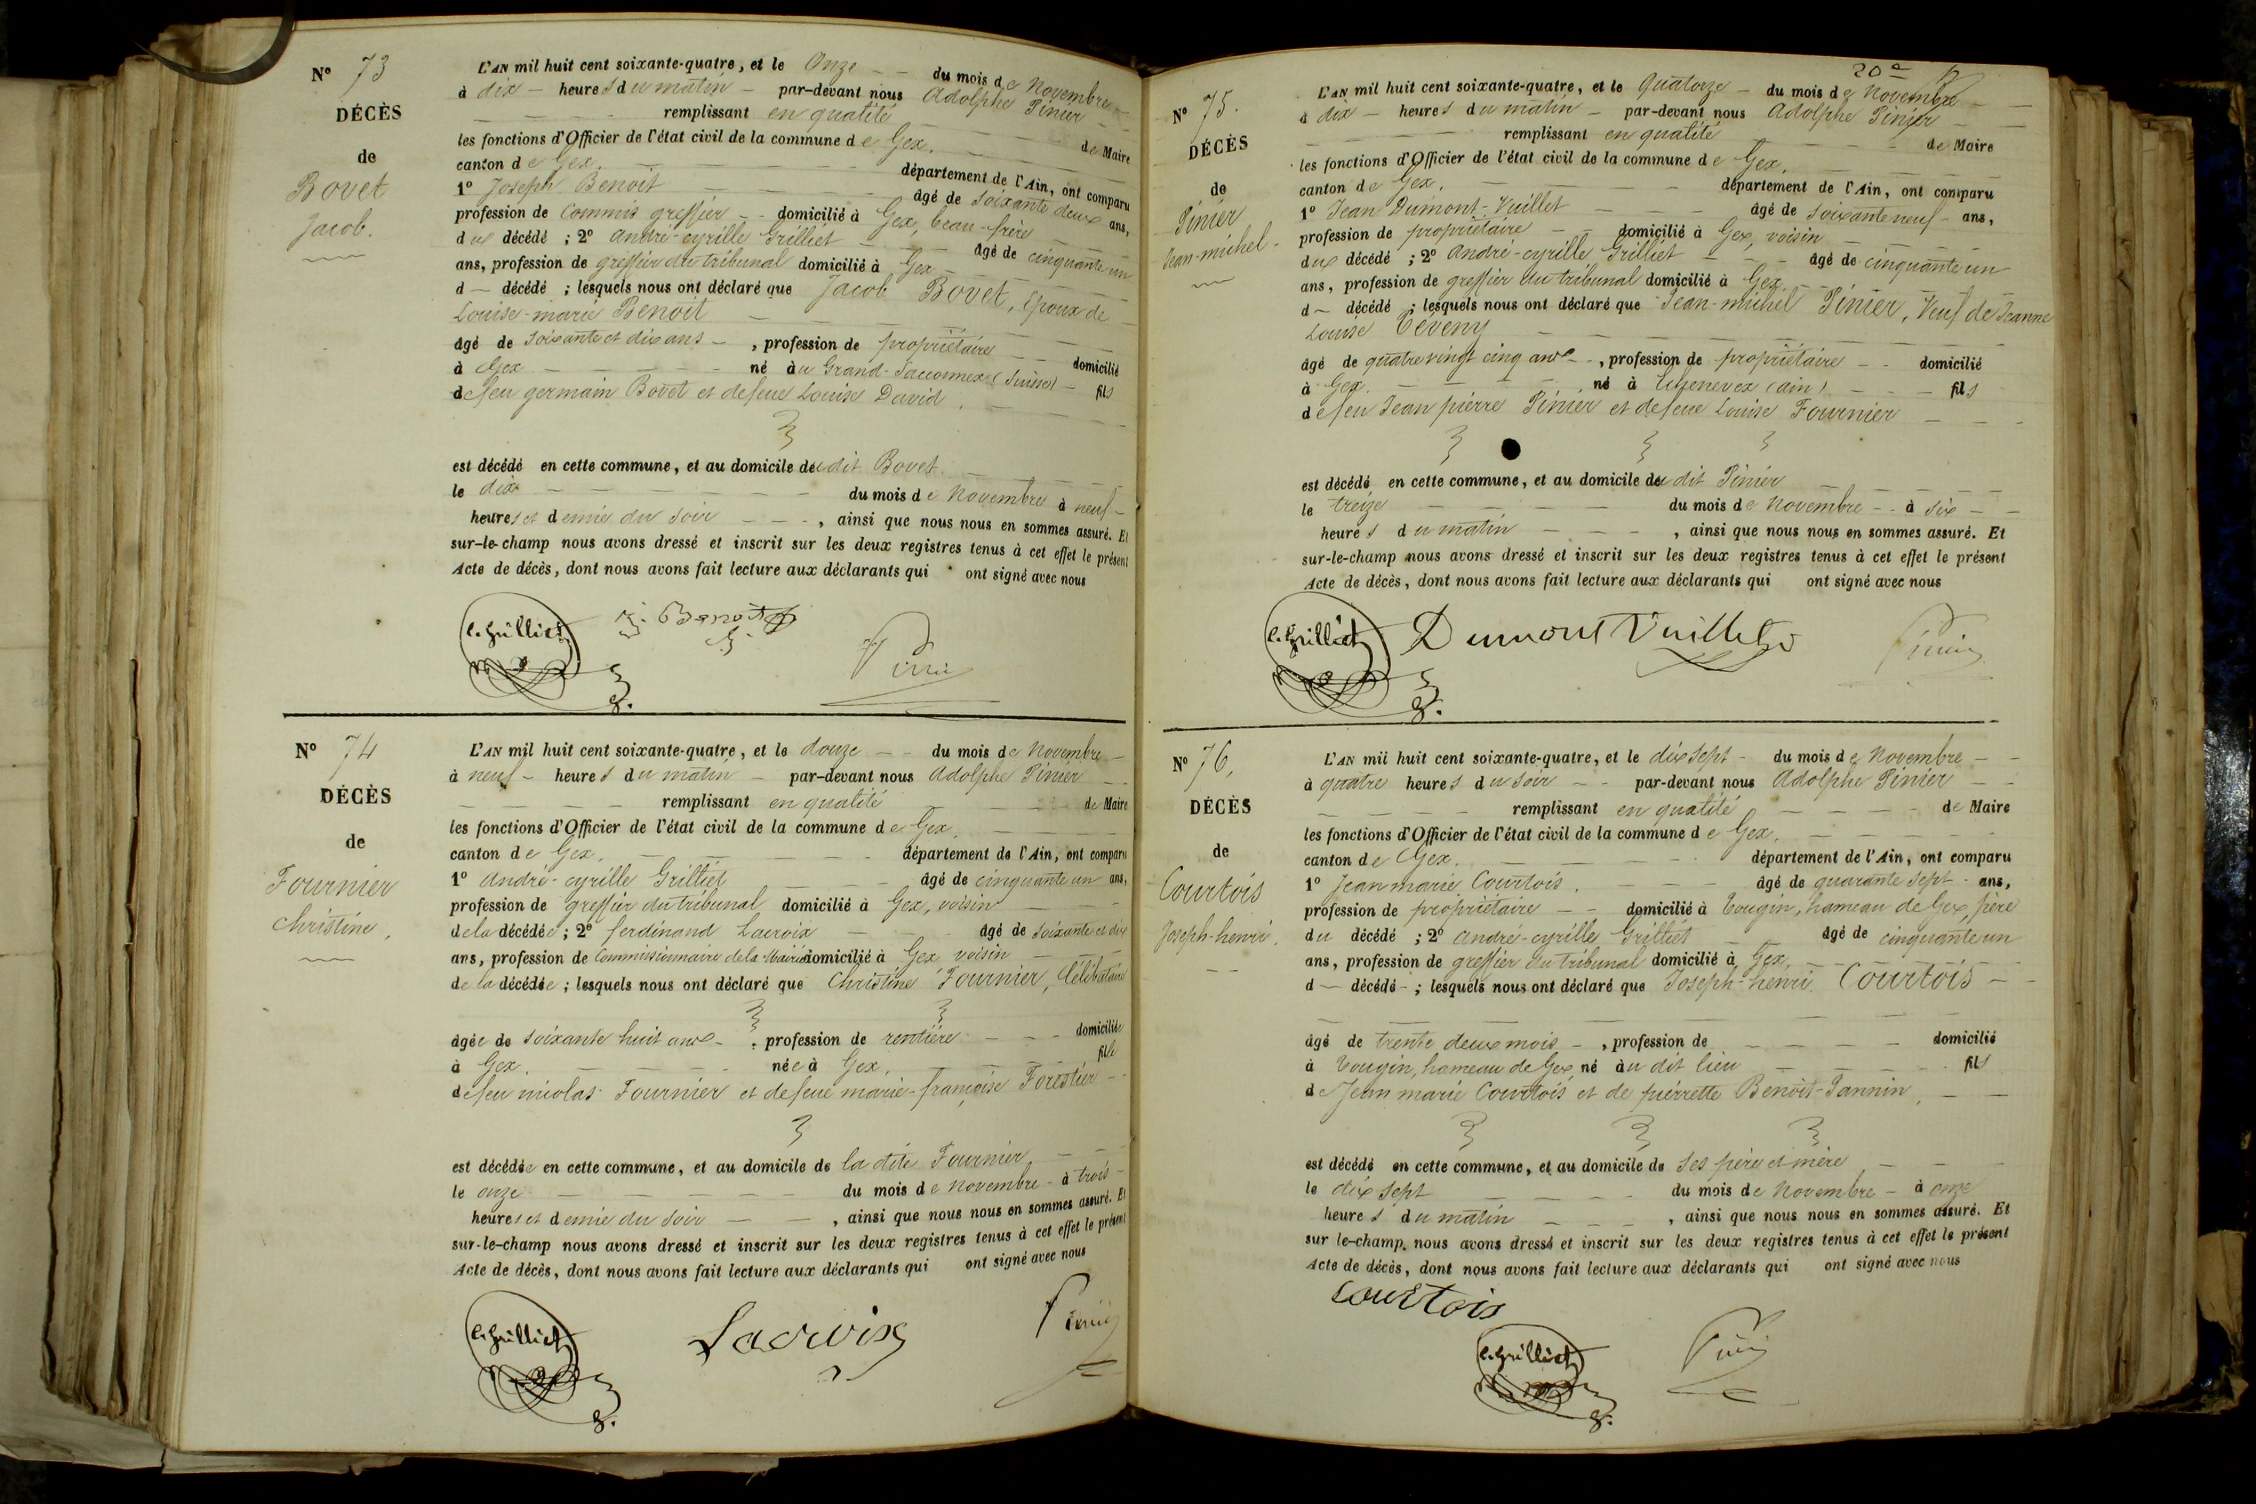 N° 73
DÉCÈS
de
Bovet
Jacob.
L'AN mil huit cent soixante-quatre, et le Onze du mois de Novembre
à dix heures du matin par-devant nous Adolphe Pinier
remplissant en qualité de Maire
les fonctions d'Officier de l'état civil de la commune de Gex.
canton de Gex. département de l'Ain, ont comparu
1° Joseph Benoit âgé de soixante deux ans,
profession de Commis greffier domicilié à Gex, beau-frère
du décédé ; 2° André-cyrille Grilliet âgé de cinquante un
ans, profession de greffier du tribunal domicilié à Gex
d décédé ; lesquels nous ont déclaré que Jacob Bovet, Epoux de
Louise-marie Benoit
âgé de soixante et dix ans, profession de propriétaire domicilié
à Gex né au Grand-Saconnex (Suisse) fils
de feu germain Bovet et de feue Louise David.
est décédé en cette commune, et au domicile dudit Bovet
le dix du mois de Novembre à neuf
heures et demie du soir, ainsi que nous nous en sommes assuré. Et
sur-le-champ nous avons dressé et inscrit sur les deux registres tenus à cet effet le présent
Acte de décès, dont nous avons fait lecture aux déclarants qui ont signé avec nous
C. Grilliet J. Benoit Pinier
N° 74
DÉCÈS
de
Fournier
Christine.
L'AN mil huit cent soixante-quatre, et le douze du mois de Novembre
à neuf heures du matin par-devant nous Adolphe Pinier
remplissant en qualité de Maire
les fonctions d'Officier de l'état civil de la commune de Gex.
canton de Gex. département de l'Ain, ont comparu
1° André-cyrille Grilliet âgé de cinquante un ans,
profession de greffier du tribunal domicilié à Gex, voisin
de la décédée ; 2° ferdinand Lacroix âgé de soixante et dix
ans, profession de Commissionnaire de la Mairie domicilié à Gex voisin
de la décédée ; lesquels nous ont déclaré que Christine Fournier, Célibataire
âgée de soixante huit ans, profession de rentière domiciliée
à Gex. née à Gex. fille
de feu nicolas Fournier et de feue marie-françoise Forestier
est décédée en cette commune, et au domicile de la dite Fournier
le onze du mois de Novembre à trois
heures et demie du soir, ainsi que nous nous en sommes assuré. Et
sur-le-champ nous avons dressé et inscrit sur les deux registres tenus à cet effet le présent
Acte de décès, dont nous avons fait lecture aux déclarants qui ont signé avec nous
C. Grilliet Lacroix Pinier
20e
N° 75.
DÉCÈS
de
Pinier
Jean-michel.
L'AN mil huit cent soixante-quatre, et le Quatorze du mois de Novembre
à dix heures du matin par-devant nous Adolphe Pinier
remplissant en qualité de Maire
les fonctions d'Officier de l'état civil de la commune de Gex.
canton de Gex. département de l'Ain, ont comparu
1° Jean Dumont-Vuillet âgé de soixante neuf ans,
profession de propriétaire domicilié à Gex, voisin
du décédé ; 2° André-cyrille Grilliet âgé de cinquante un
ans, profession de greffier du tribunal domicilié à Gex.
d décédé ; lesquels nous ont déclaré que Jean-michel Pinier, Veuf de Jeanne
Louise Téveny
âgé de quatre vingt cinq ans, profession de propriétaire domicilié
à Gex. né à Chenevex (ain) fils
de feu Jean pierre Pinier et de feue Louise Fournier
est décédé en cette commune, et au domicile du dit Pinier
le treize du mois de Novembre à six
heures du matin, ainsi que nous nous en sommes assuré. Et
sur-le-champ nous avons dressé et inscrit sur les deux registres tenus à cet effet le présent
Acte de décès, dont nous avons fait lecture aux déclarants qui ont signé avec nous
C. Grilliet Dumont Vuillet Pinier
N° 76,
DÉCÈS
de
Courtois
Joseph-henri.
L'AN mil huit cent soixante-quatre, et le dix sept du mois de Novembre
à quatre heures du soir par-devant nous Adolphe Pinier
remplissant en qualité de Maire
les fonctions d'Officier de l'état civil de la commune de Gex.
canton de Gex. département de l'Ain, ont comparu
1° Jean marie Courtois. âgé de quarante sept ans,
profession de propriétaire domicilié à Tougin, hameau de Gex, père
du décédé ; 2° André-cyrille Grilliet âgé de cinquante un
ans, profession de greffier du tribunal domicilié à Gex.
d décédé ; lesquels nous ont déclaré que Joseph-henri Courtois
âgé de trente deux mois, profession de domicilié
à Tougin, hameau de Gex né au dit lieu fils
de Jean marie Courtois et de pierrette Benoit-Jannin,
est décédé en cette commune, et au domicile de ses père et mère
le dix sept du mois de Novembre à onze
heures du matin, ainsi que nous nous en sommes assuré. Et
sur le-champ nous avons dressé et inscrit sur les deux registres tenus à cet effet le présent
Acte de décès, dont nous avons fait lecture aux déclarants qui ont signé avec nous
Courtois
C. Grilliet Pinier